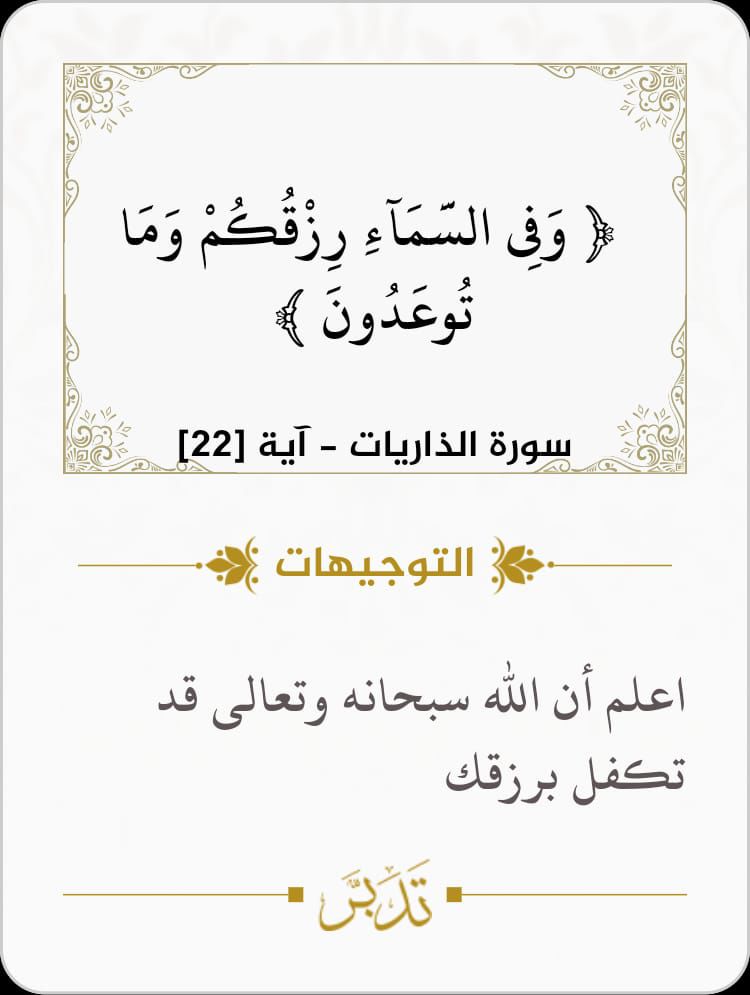 ﴿ وَفِى السَّمَآءِ رِزْقُكُمْ وَمَا
تُوعَدُونَ ﴾
سورة الذاريات - آية [22]
التوجيهات
اعلم أن الله سبحانه وتعالى قد
تكفل برزقك
تَدَبَّر